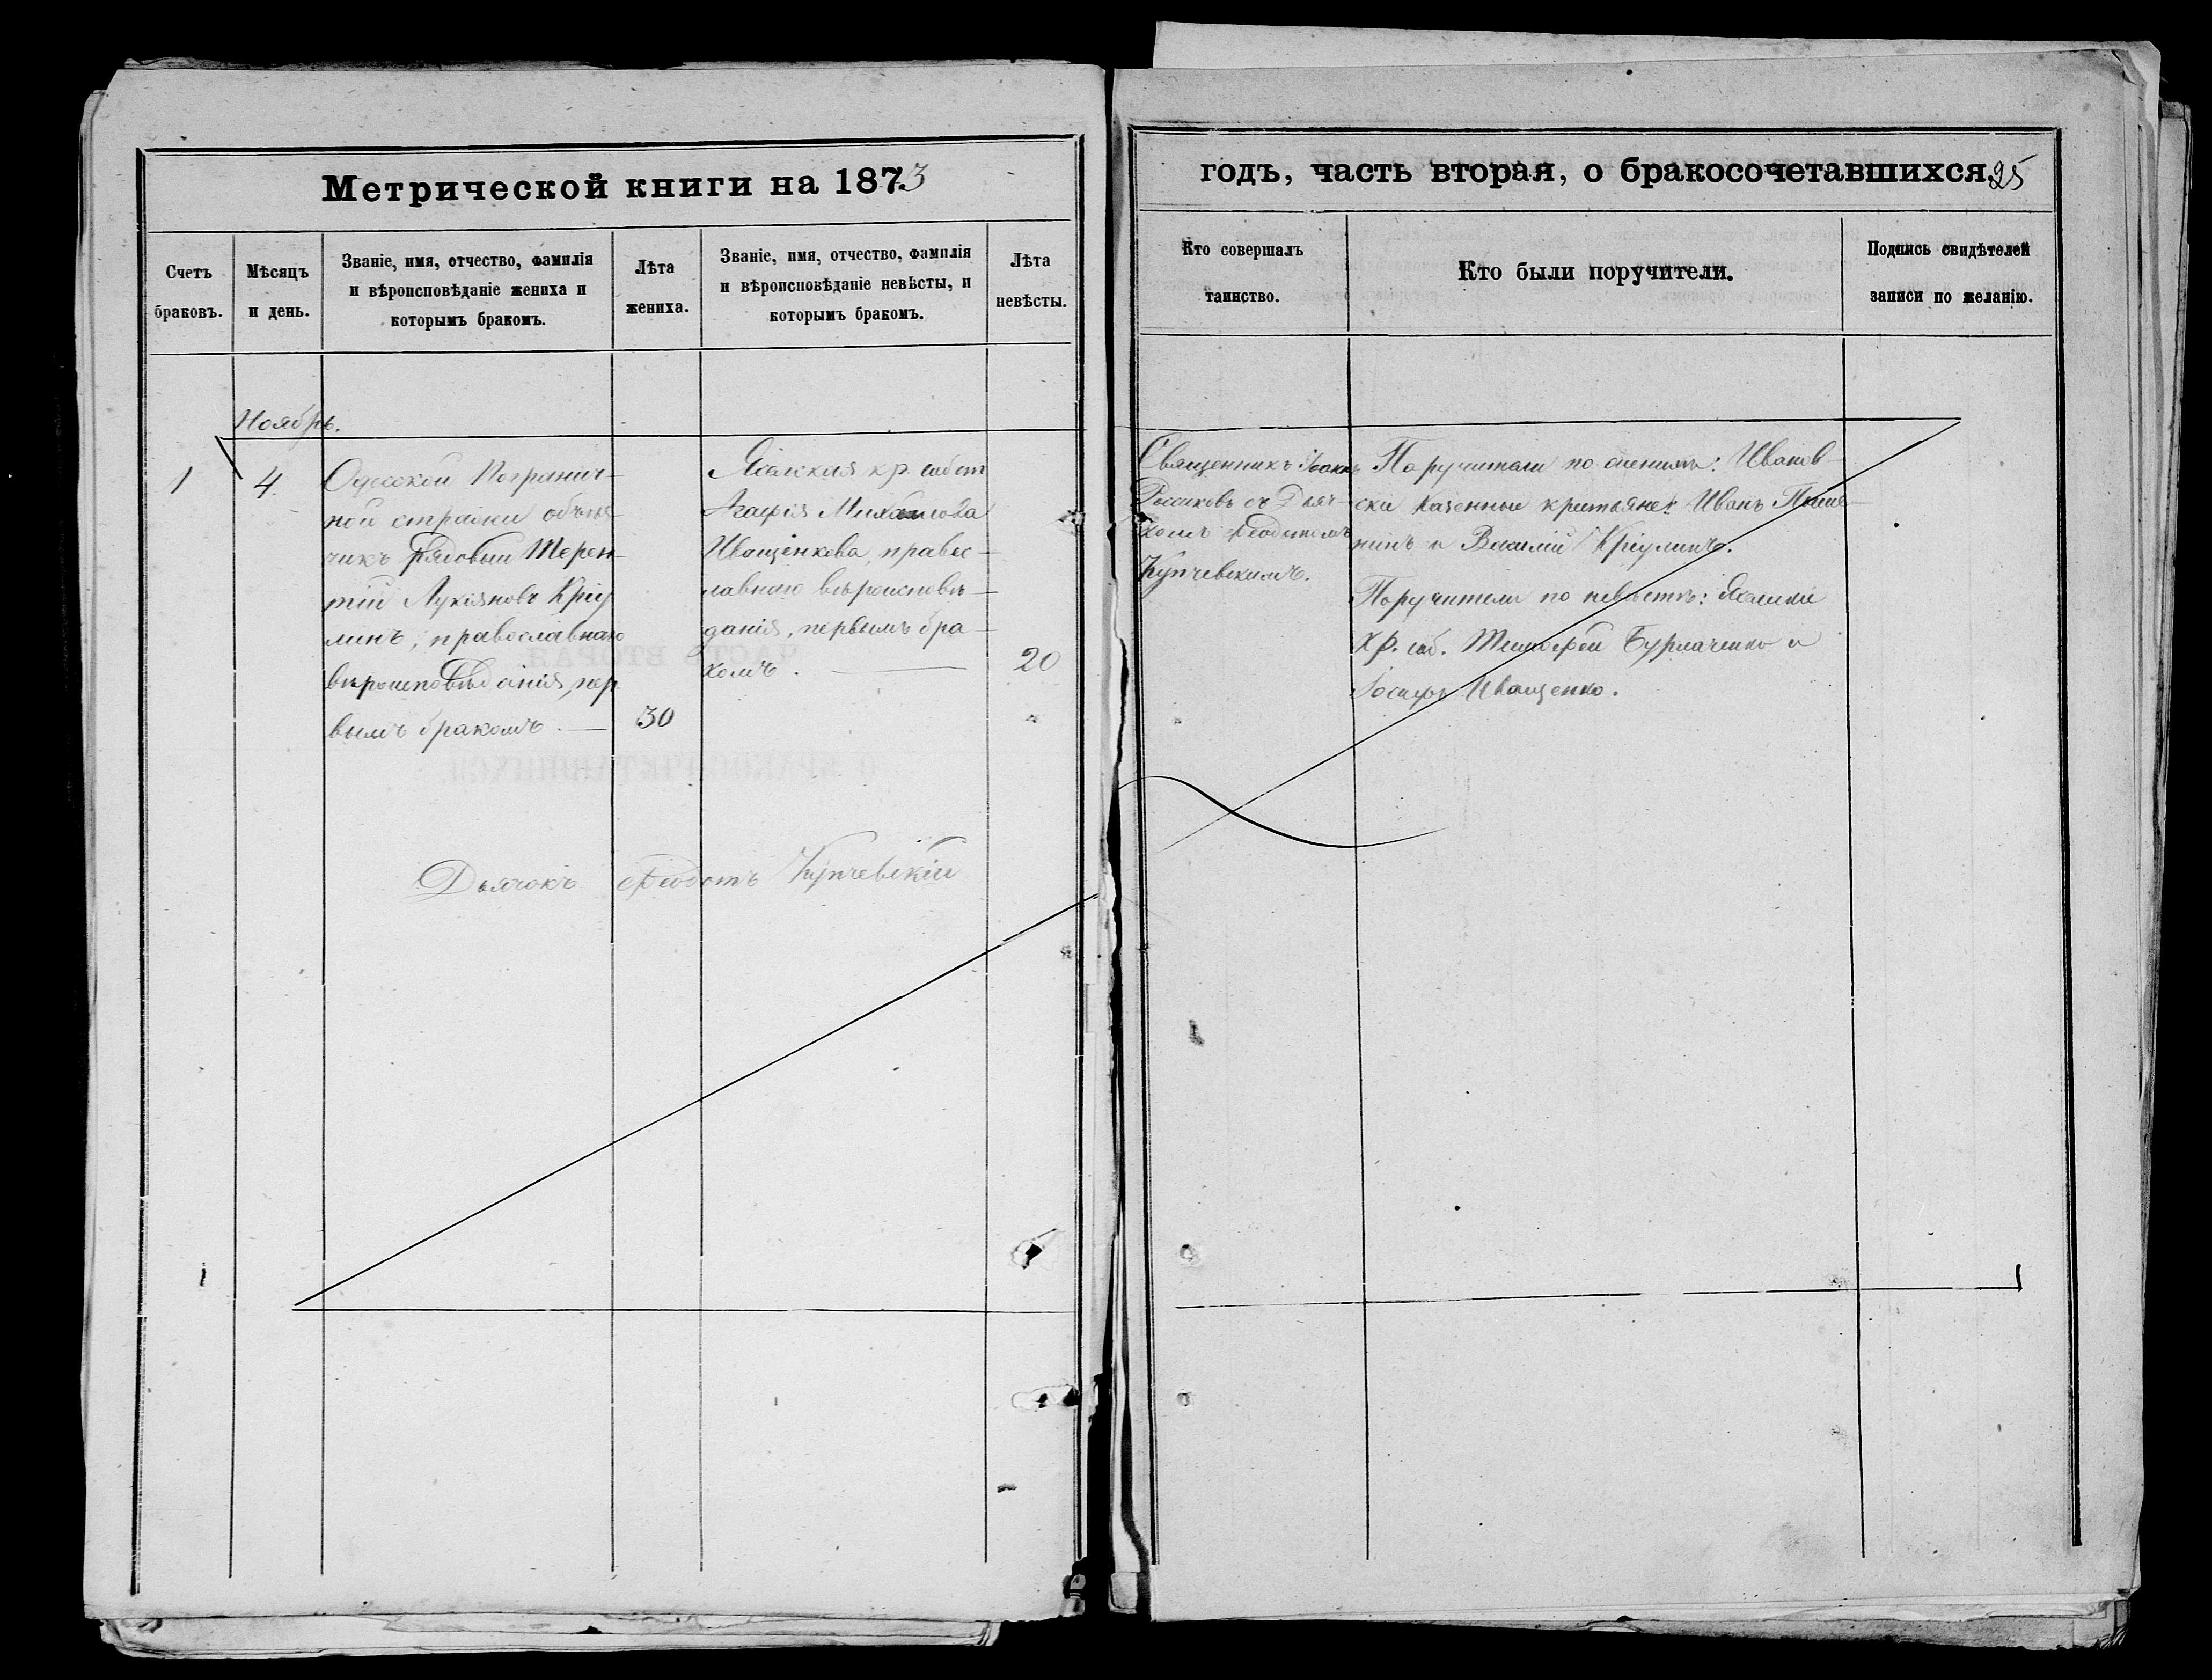 Метрической книги на 1873
годъ, часть вторая, о бракосочетавшихся.
25
Счетъ браковъ.
Мѣсяцъ и день.
Званіе, имя, отчество, фамилія
и вѣроисповѣданіе жениха и
которымъ бракомъ.
Лѣта жениха.
Званіе, имя, отчество, фамилія
и вѣроисповѣданіе невѣсты, и
которымъ бракомъ.
Лѣта невѣсты.
Кто совершалъ
таинство.
Кто были поручители.
Подпись свидѣтелей
записи по желанію.
Ноябрь.
1
4.
Одесской Погранич-
ной стражи объѣз-
чикъ рядовый Терен-
тій Лукіяновъ Кріу
линъ, православнаго
вѣроисповѣданія, пер
вымъ бракомъ. —
30
кр. собст
Агафія Михаилова
Иващенкова, правос-
лавнаго вѣроисповѣ-
данія, первымъ бра-
комъ. —
20
Священникъ Іоаннъ
съ Дьяч-
комъ Феодотомъ
Купчевскимъ.
Поручители по женихѣ: Иванов-
скіе казенные крестьяне: Иванъ
и Василій Кріулинъ.
Поручители по невѣстѣ:
кр. соб. Тимофей Бурлаченко и
Іосифъ Иващенко.
Дьячокъ Феодотъ Купчевскій